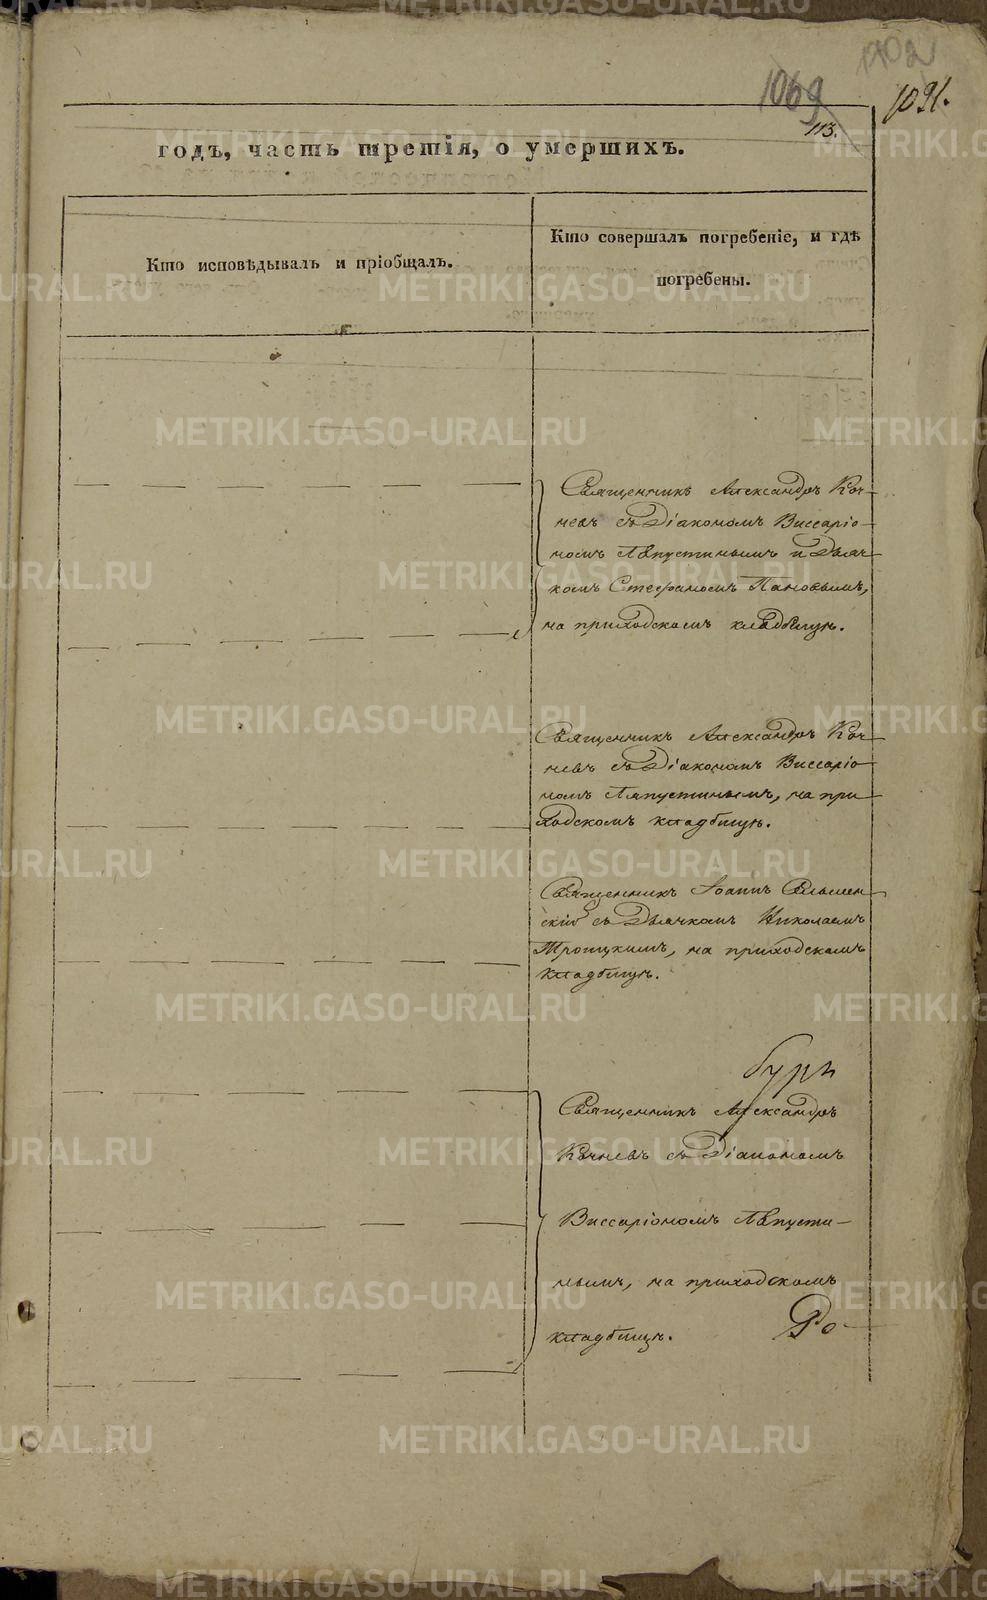 1702
1069
1091.
113.
годъ, часть третія, о умершихъ.
Кто исповѣдывалъ и пріобщалъ.
Кто совершалъ погребеніе, и гдѣ
погребены.
Священникъ Александръ Коч-
невъ съ Діакономъ Виссаріо-
номъ Августиновымъ и Дьяч-
комъ Стефаномъ Пановымъ,
на приходскомъ кладбищѣ.
Священникъ Александръ Коч-
невъ съ Діакономъ Виссаріо-
номъ на при-
ходскомъ кладбищѣ.
Священникъ Іоаннъ
съ Дьячкомъ Николаемъ
Троицкимъ, на приходскомъ
кладбищѣ.
Священникъ Александръ
Кочневъ съ Діакономъ
Виссаріономъ
на приходскомъ
кладбищѣ. Ро-
METRIKI.GASO-URAL.RU